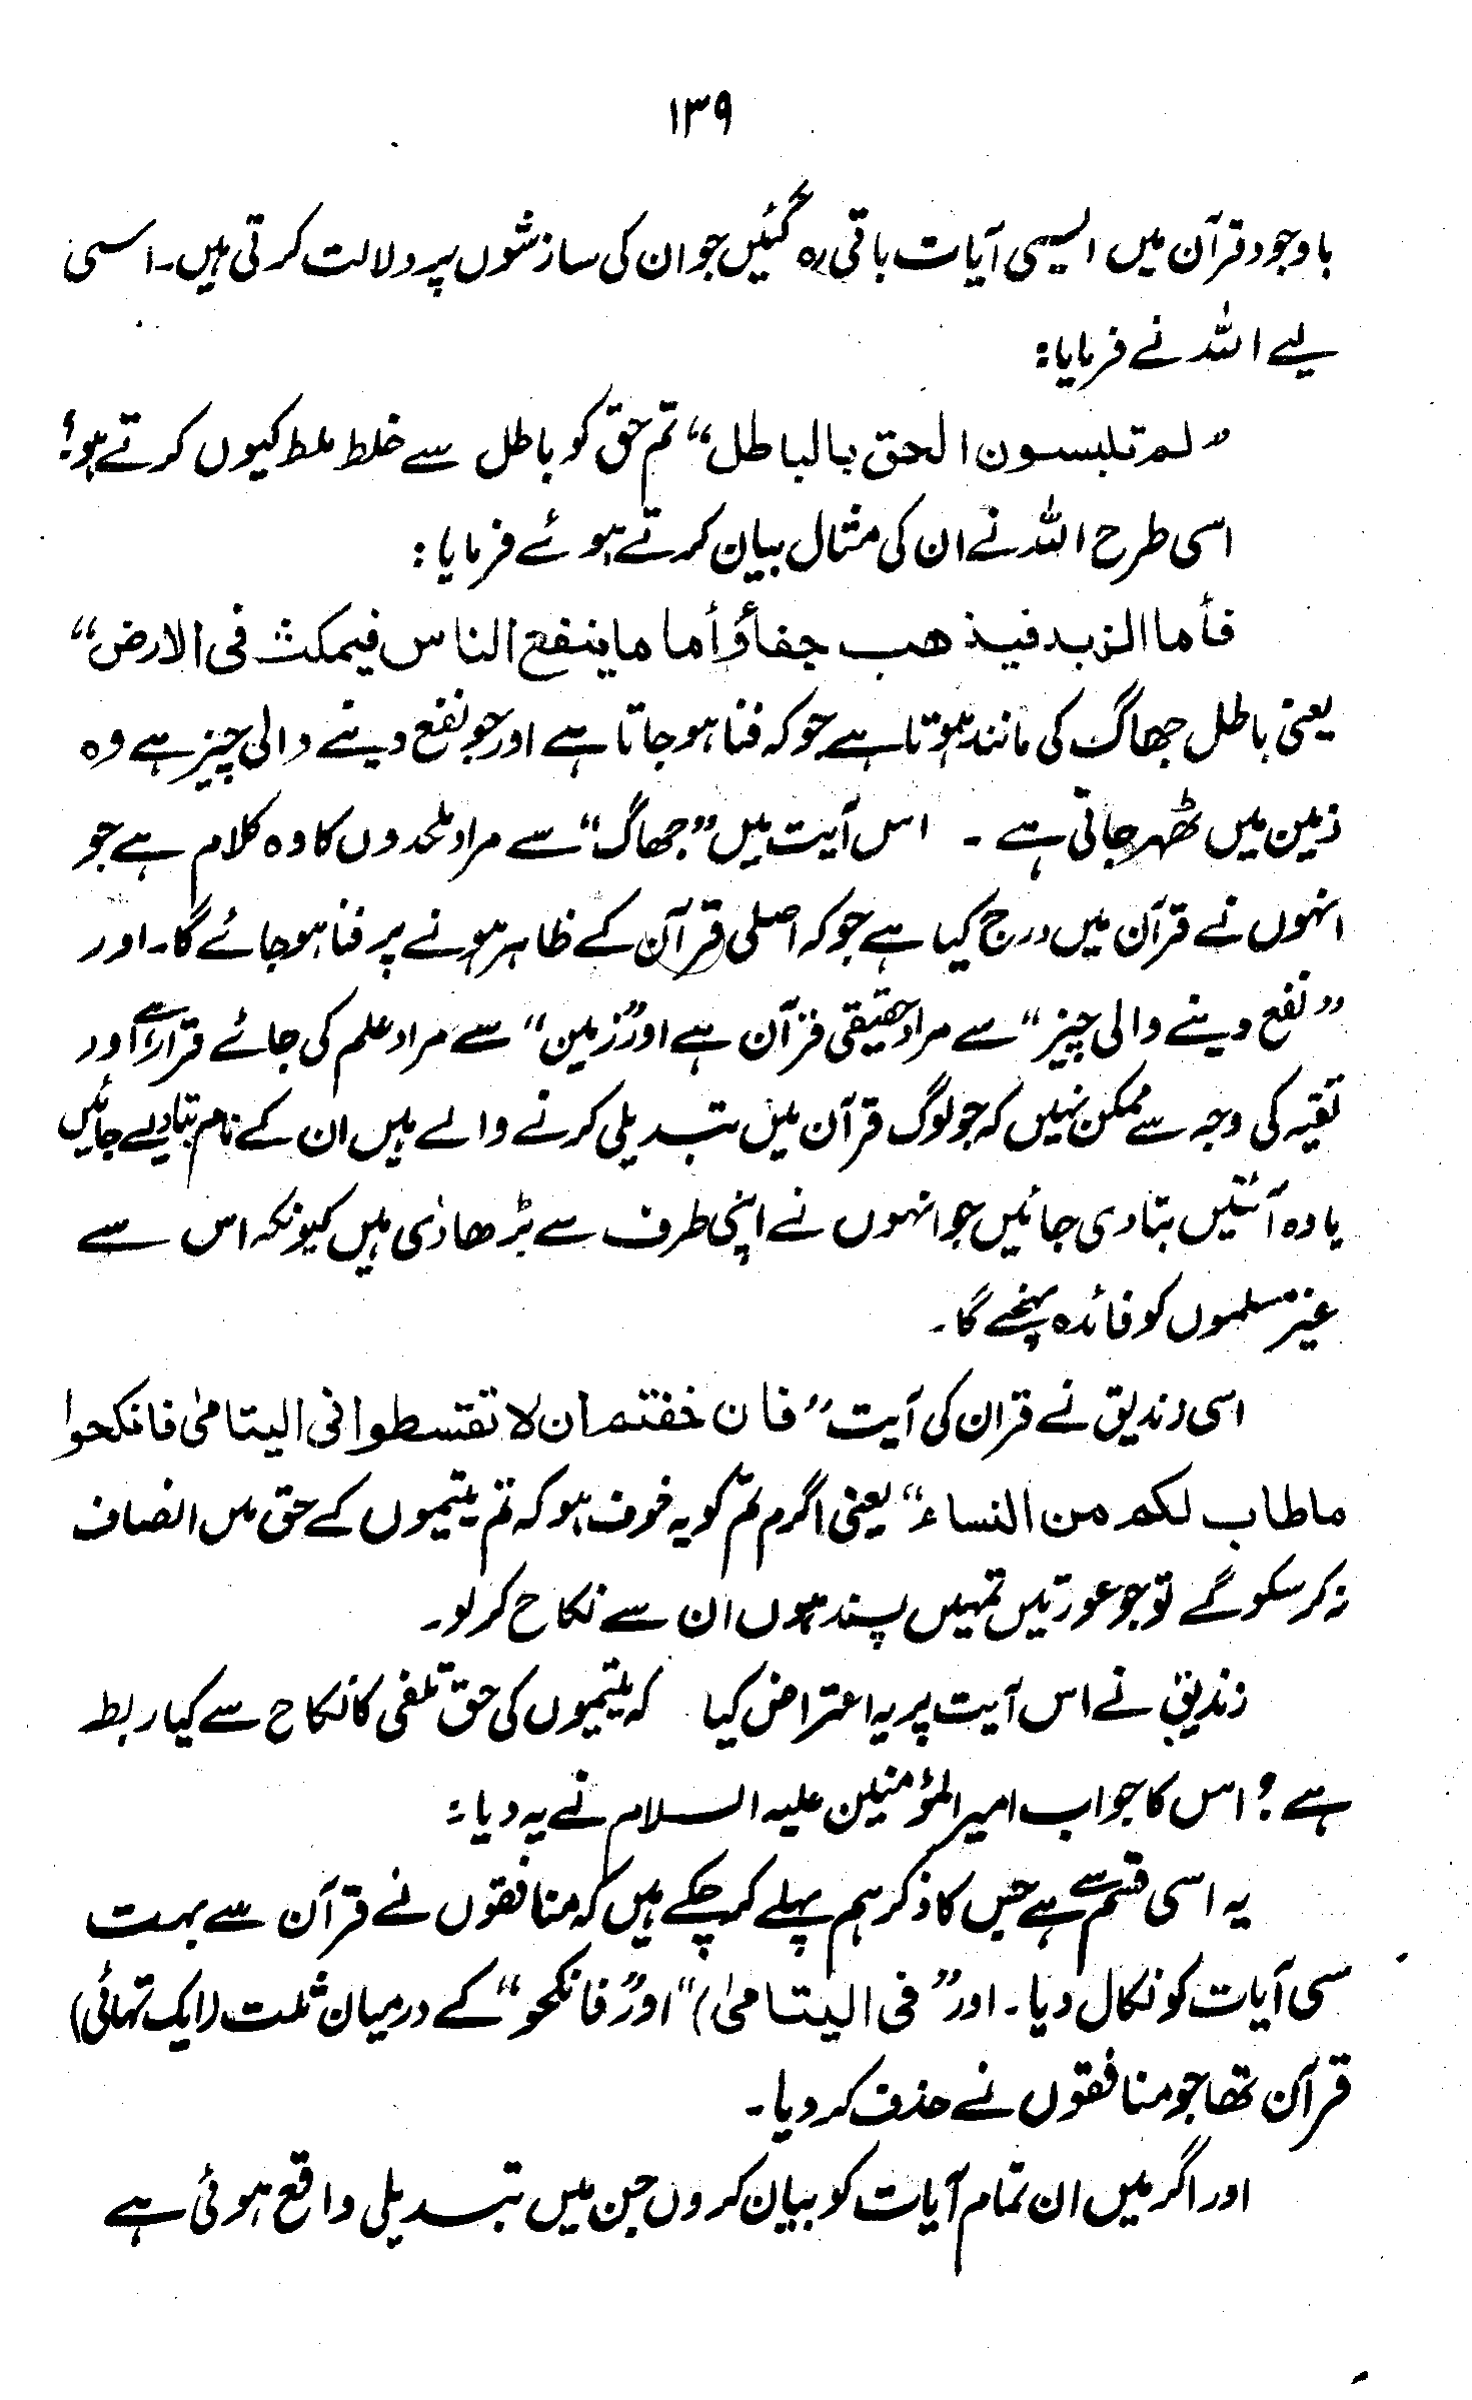 ۱۳۹
باوجود قرآن میں ایسی آیات باقی رہ گئیں جو ان کی سازشوں پر دلالت کرتی ہیں۔ اسی
لیے اللہ نے فرمایا:
"لم تلبسون الحق بالباطل" تم حق کو باطل سے خلط ملط کیوں کرتے ہو؟
اسی طرح اللہ نے ان کی مثال بیان کرتے ہوئے فرمایا:
فأما الزبد فیذھب جفاؤأما ماینفع الناس فیمکث فی الارض"
یعنی باطل جھاگ کی مانند ہوتا ہے جو کہ فنا ہو جاتا ہے اور جو نفع دینے والی چیز ہے وہ
زمین میں ٹھہر جاتی ہے ۔ اس آیت میں "جھاگ" سے مراد ملحدوں کا وہ کلام ہے جو
انہوں نے قرآن میں درج کیا ہے جو کہ اصلی قرآن کے ظاہر ہونے پر فنا ہو جائے گا۔ اور
"نفع دینے والی چیز" سے مراد حقیقی قرآن ہے اور "زمین" سے مراد علم کی جائے قرار ہے اور
تقیہ کی وجہ سے ممکن نہیں کہ جو لوگ قرآن میں تبدیلی کرنے والے ہیں ان کے نام بتا دیے جائیں
یا وہ آئتیں بتا دی جائیں جو انہوں نے اپنی طرف سے بڑھا دی ہیں کیونکہ اس سے
غیر مسلموں کو فائدہ پہنچے گا۔
اسی زندیق نے قران کی آیت "فان خفتم ان لا تقسطوا فی الیتامیٰ فانکحوا
ماطاب لکم من النساء" یعنی اگرم تم کو یہ خوف ہو کہ تم یتیموں کے حق میں انصاف
نہ کر سکو گے تو جو عورتیں تمہیں پسند ہوں ان سے نکاح کر لو۔
زندیق نے اس آیت پر یہ اعتراض کیا کہ یتیموں کی حق تلفی کا نکاح سے کیا ربط
ہے؟ اس کا جواب امیر المؤمنین علیہ السلام نے یہ دیا:
یہ اسی قسم سے ہے جس کا ذکر ہم پہلے کر چکے ہیں کہ منافقوں نے قرآن سے بہت
سی آیات کو نکال دیا۔ اور "فی الیتامیٰ)" اور "فانکحو" کے درمیان ثلث (ایک تہائی)
قرآن تھا جو منافقوں نے حذف کر دیا۔
اور اگر میں ان تمام آیات کو بیان کروں جن میں تبدیلی واقع ہوئی ہے